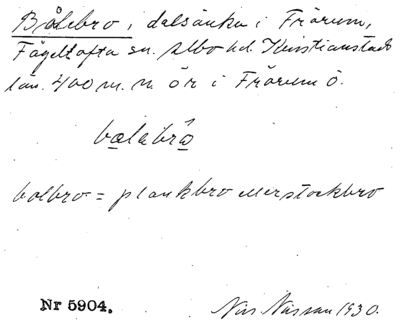 Bålebro, dalsänka i Frörum,
Fågeltofta sn. Albo hd. Kristianstads
län. 400 m. n. ör i Frörum Ö.
balabrå
bolbro = plankbro eller stockbro
Nr 5904.
Nils Nilsson 1930.